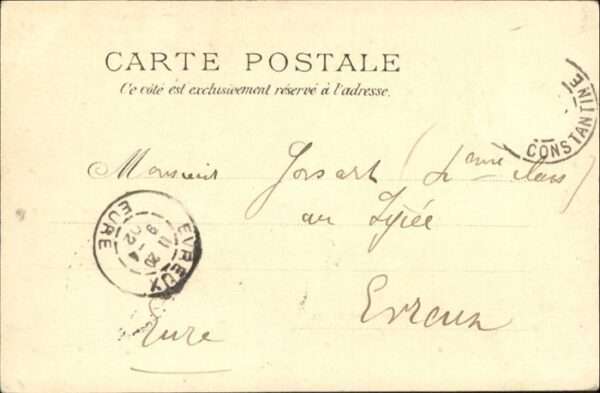 CARTE POSTALE
Ce côté est exclusivement réservé à l'adresse.
CONSTANTINE
Monsieur
au Lycée
EVREUX
EURE
Evreux
Eure